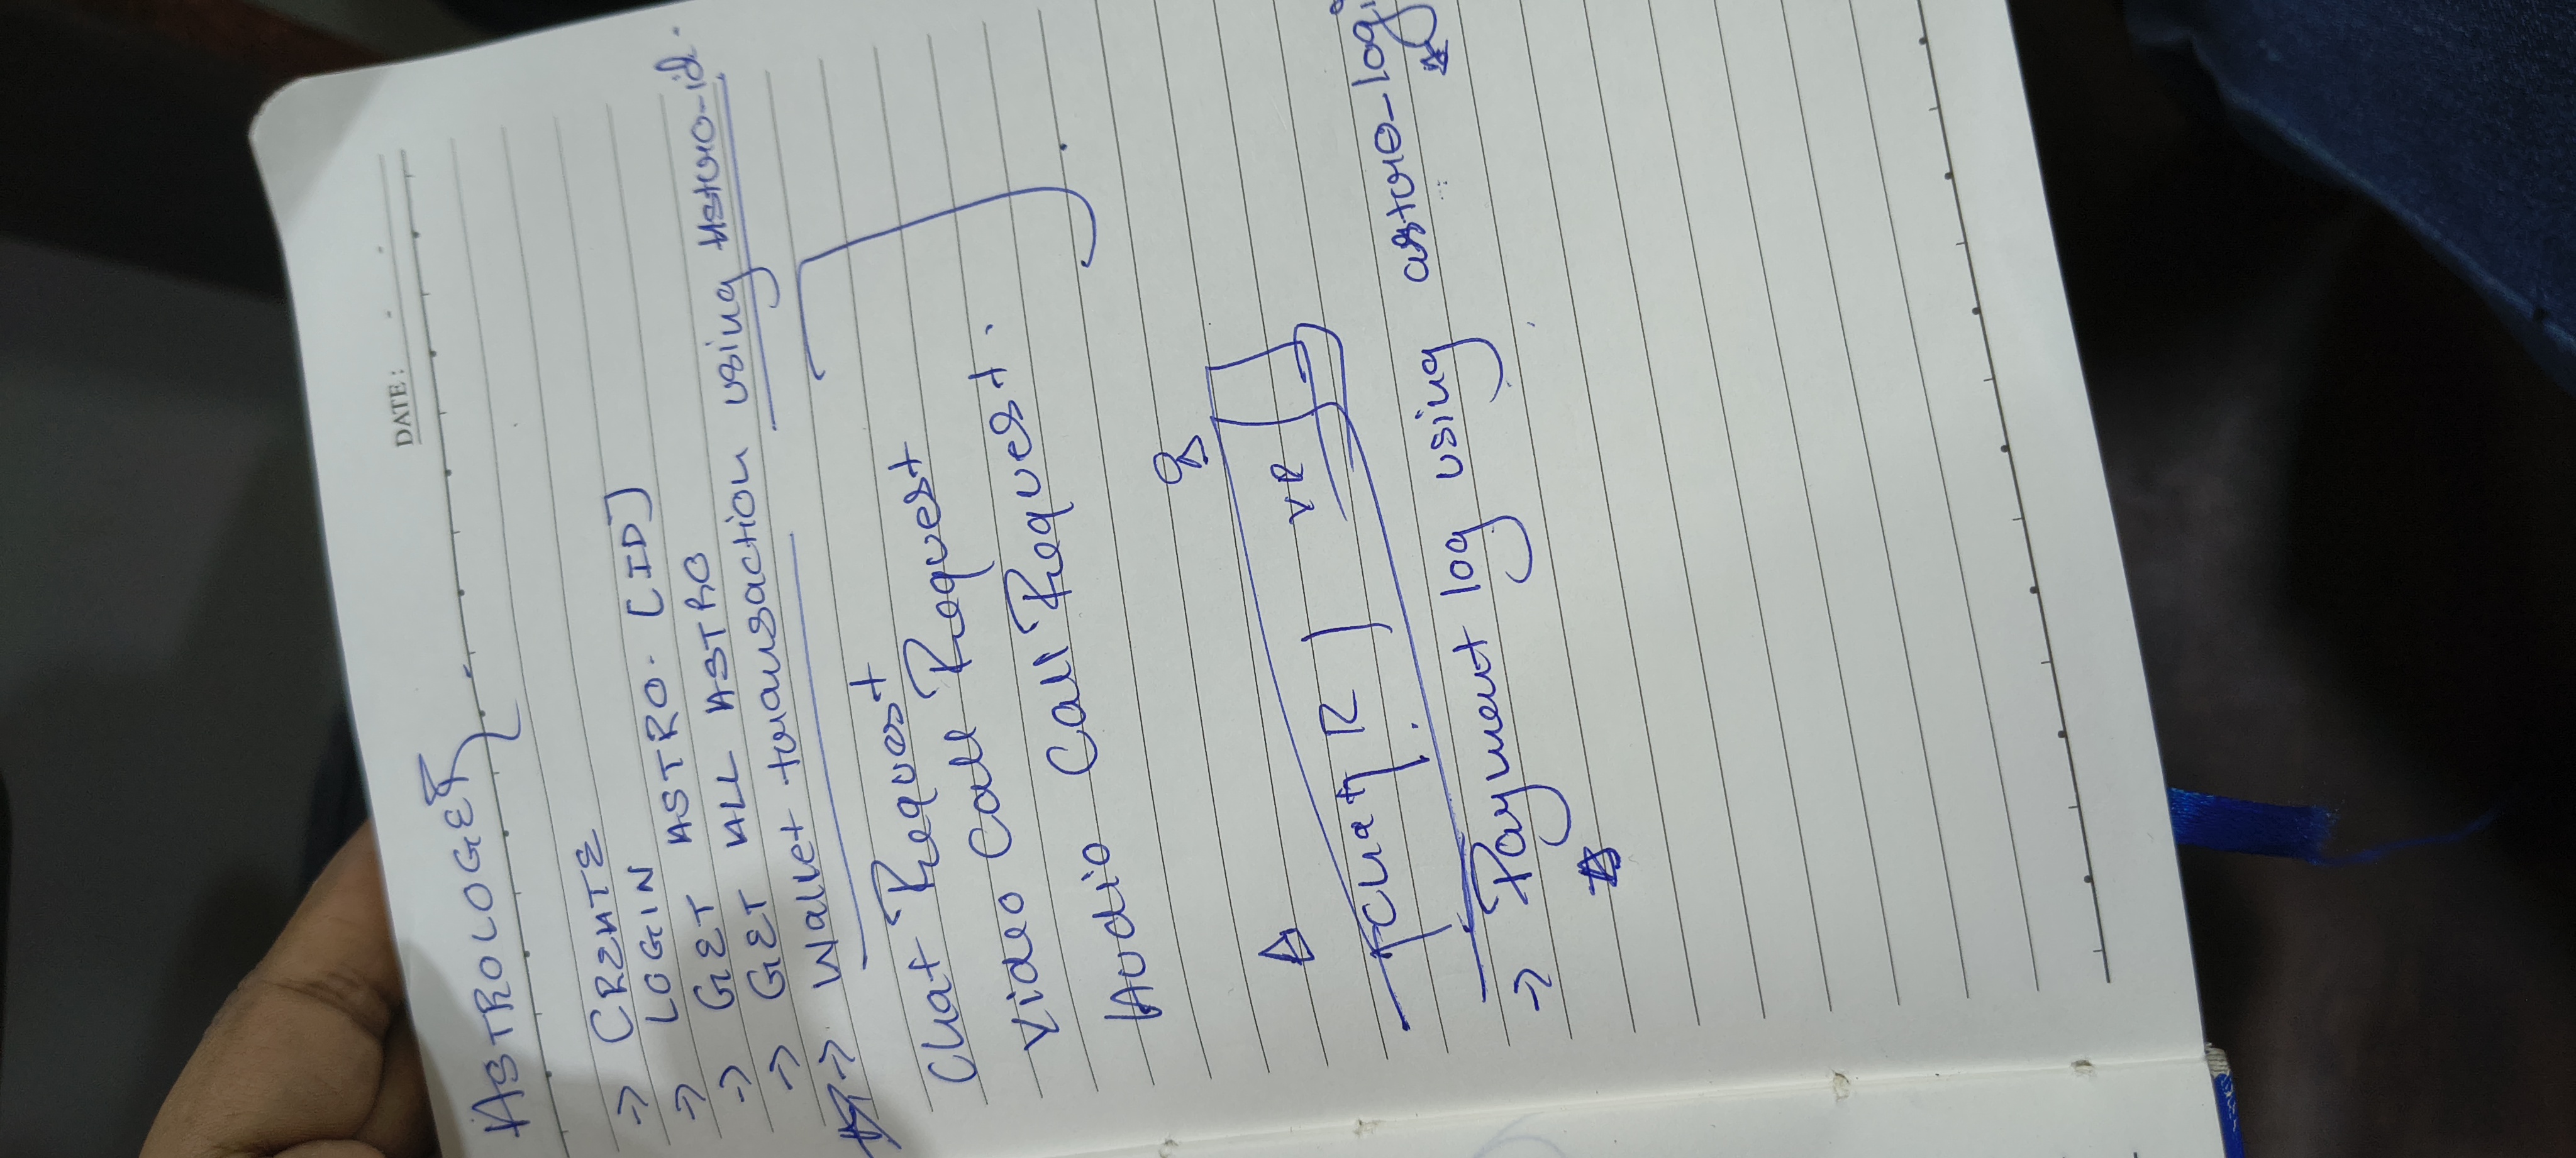 DATE : - -
ASTROLOGER
→ CREATE
→ LOGIN
→ GET ASTRO. [ID]
→ GET ALL ASTRO
→ Wallet transaction using Astro-id.
Chat Request
Video Call Request
Audio Call Request.
Chat R
VR
→ Payment log using astro-logi